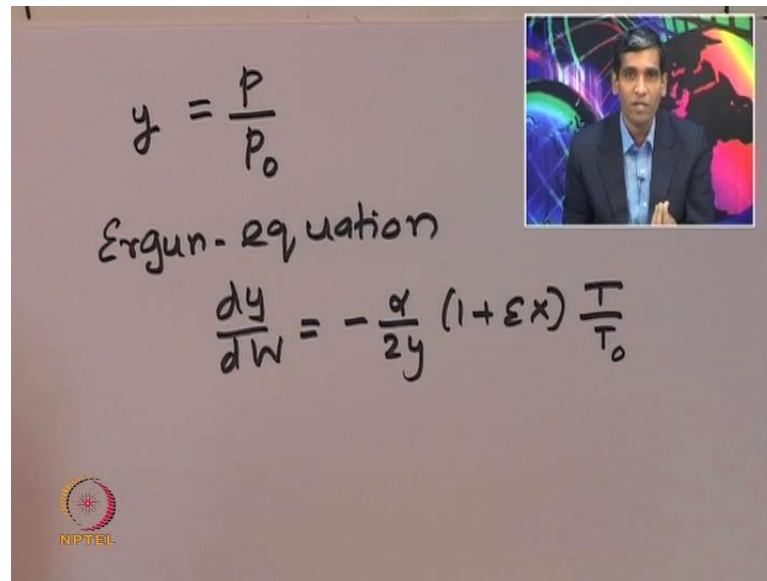 y = P/P₀
Ergun-equation
dy/dW = - α/2y (1 + εX) T/T₀
NPTEL